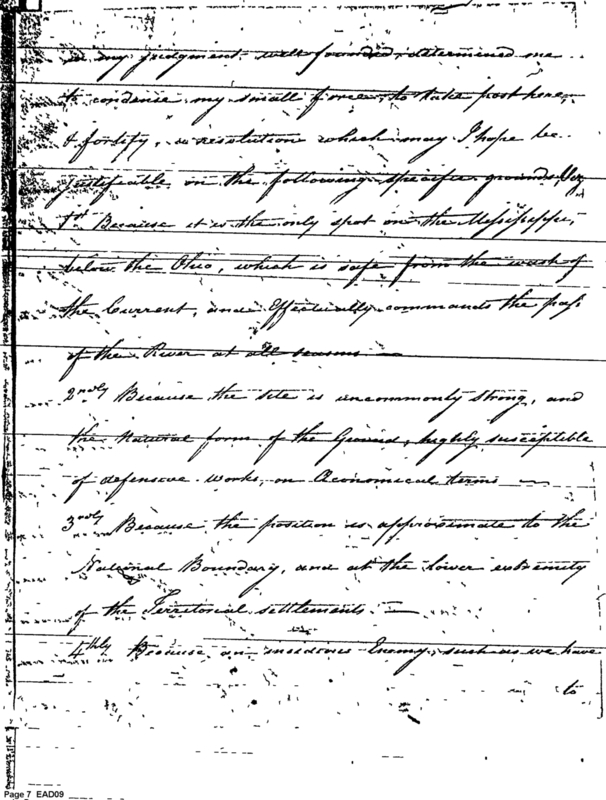 in my judgment well founded, determined me
to condense my small force, to take post here,
& fortify, a resolution which may I hope be
justifiable on the following specific grounds Viz
1st Because it is the only spot on the Missisippi,
below the Ohio, which is safe from the wash of
the Current, and Effectually commands the pass
of the River at all seasons —
2ndly Because the site is uncommonly strong, and
the Natural form of the Ground, highly susceptible
of defensive works, on Œconomical terms —
3rdly Because the position is approximate to the
National Boundary, and at the lower extremity
of the Territorial settlements. —
4thly Because an insidious Enemy, such as we have
to
Page 7 EAD09